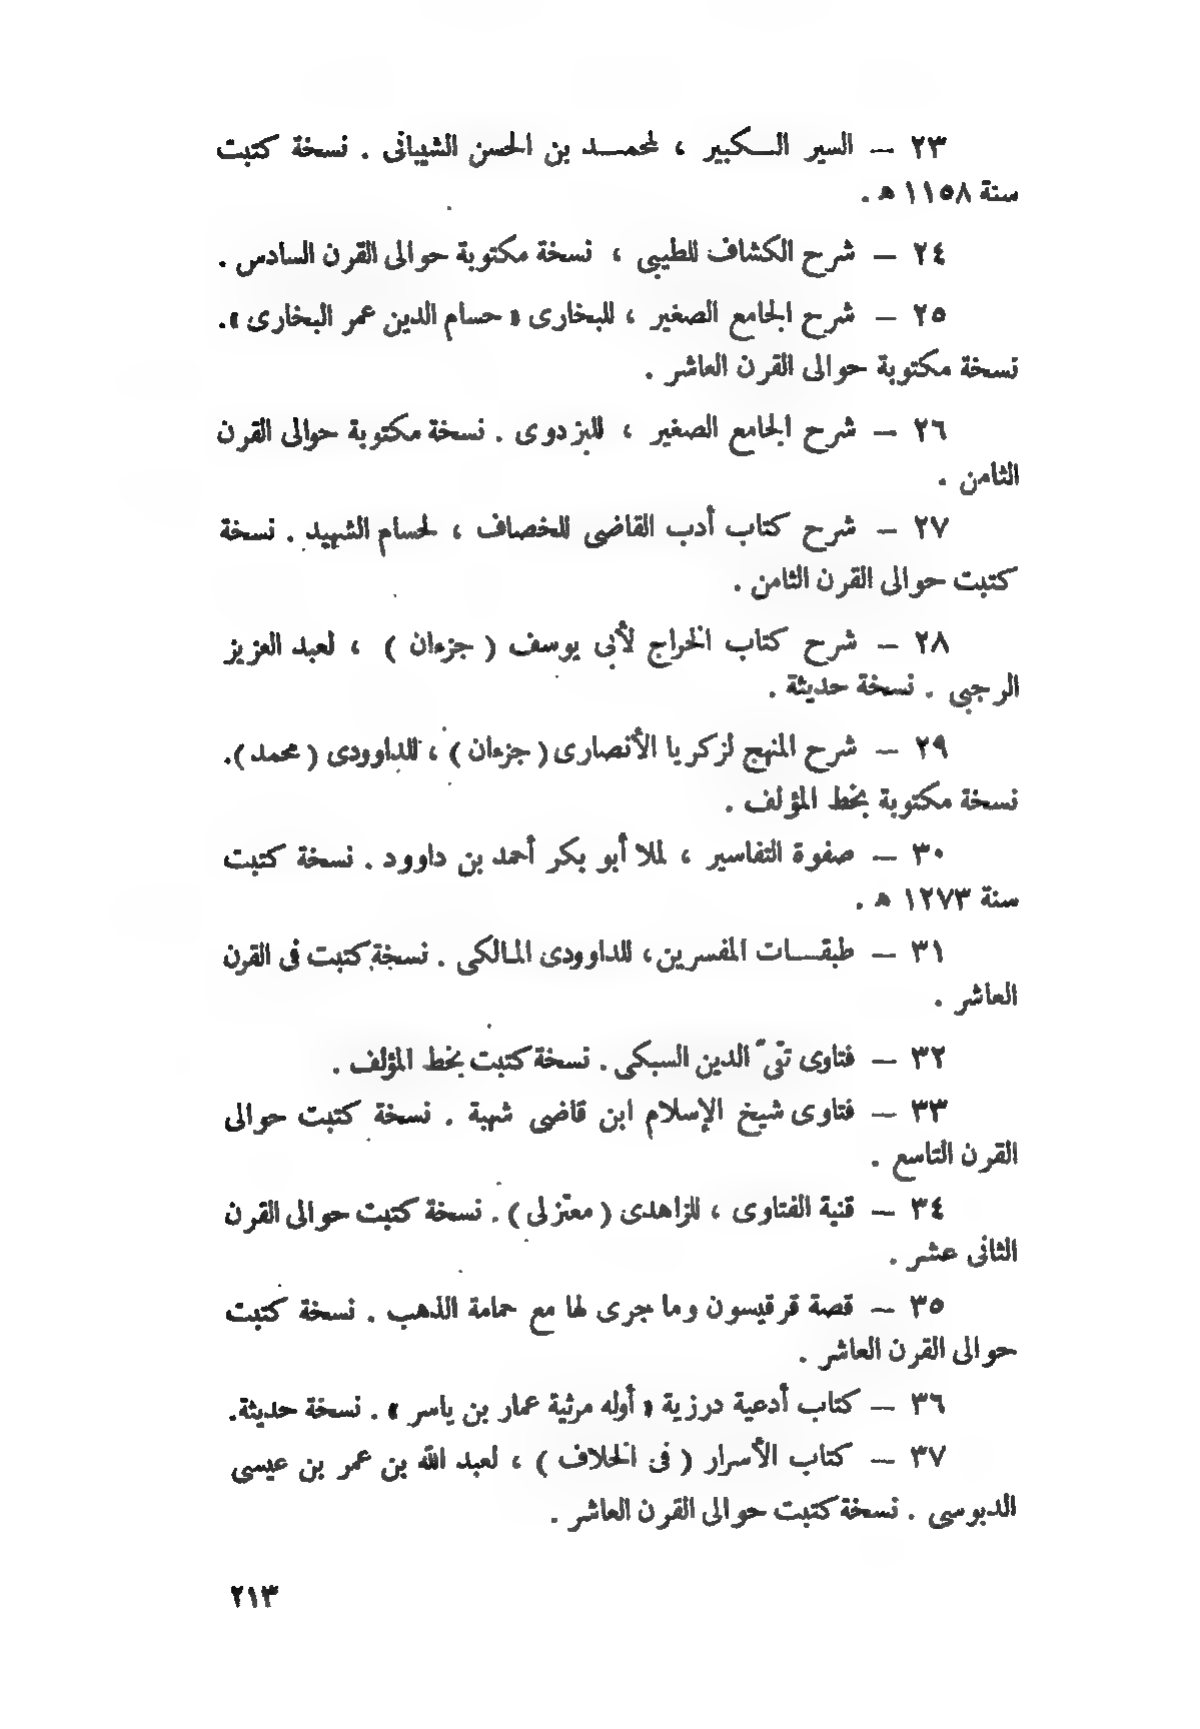 ٢٣ — السير الـكبير ، لمحمـد بن الحسن الشيبانى . نسخة كتبت
سنة ١١٥٨ ه .
٢٤ — شرح الكشاف للطيبى ، نسخة مكتوبة حوالى القرن السادس .
٢٥ — شرح الجامع الصغير ، للبخارى « حسام الدين عمر البخارى ».
نسخة مكتوبة حوالى القرن العاشر .
٢٦ — شرح الجامع الصغير ، للبزدوى . نسخة مكتوبة حوالى القرن
الثامن .
٢٧ — شرح كتاب أدب القاضى للخصاف ، لحسام الشهيد . نسخة
كتبت حوالى القرن الثامن .
٢٨ — شرح كتاب الخراج لأبى يوسف ( جزءان ) ، لعبد العزيز
الرجبى . نسخة حديثة .
٢٩ — شرح المنهج لزكريا الأنصارى ( جزءان ) ، للداوودى ( محمد ).
نسخة مكتوبة بخط المؤلف .
٣٠ — صفوة التفاسير ، لملا أبو بكر أحمد بن داوود . نسخة كتبت
سنة ١٢٧٣ ه .
٣١ — طبقـات المفسرين ، للداوودى المالكى . نسخة كتبت فى القرن
العاشر .
٣٢ — فتاوى تقىّ الدين السبكى . نسخة كتبت بخط المؤلف .
٣٣ — فتاوى شيخ الإسلام ابن قاضى شهبة . نسخة كتبت حوالى
القرن التاسع .
٣٤ — قنية الفتاوى ، للزاهدى ( معتزلى ) . نسخة كتبت حوالى القرن
الثانى عشر .
٣٥ — قصة قرقيسون وما جرى لها مع حمامة الذهب . نسخة كتبت
حوالى القرن العاشر .
٣٦ — كتاب أدعية درزية « أوله مرثية عمار بن ياسر » . نسخة حديثة.
٣٧ — كتاب الأسرار ( فى الخلاف ) ، لعبد الله بن عمر بن عيسى
الدبوسى . نسخة كتبت حوالى القرن العاشر .
٢١٣